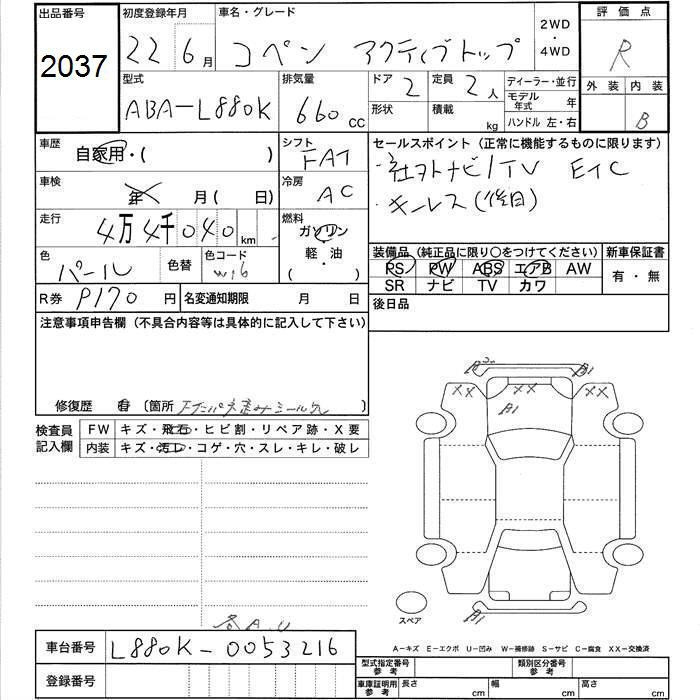 出品番号
2037
初度登録年月
22 6月
車名・グレード
コペン アクティブトップ
2WD
・
4WD
評価点
R
外装 内装
B
型式
ABA-L880K
排気量
660 CC
ドア 2
形状
定員 2人
積載 kg
ディーラー・並行
モデル年式 年
ハンドル 左・右
車歴
自家用・( )
シフト
FAT
車検
年 月(日)
冷房
AC
走行
4万4千040km
燃料
ガソリン
軽・油
( )
色
パール
色替
色コード
W16
R券 P170 円
名変通知期限 月 日
セールスポイント(正常に機能するものに限ります)
・社外ナビ/TV ETC
・キーレス(後日)
装備品(純正品に限り○をつけてください)
PS PW ABS エアB AW
SR ナビ TV カワ
新車保証書
有・無
後日品
注意事項申告欄(不具合内容等は具体的に記入して下さい)
修復歴 有 〔箇所 〕
検査員
記入欄
FW キズ・飛石・ヒビ割・リペア跡・X要
内装 キズ・汚レ・コゲ・穴・スレ・キレ・破レ
XX XX XX
B1
スペア
B1
各A.U
A-キズ E-エクボ U-凹み W-補修跡 S-サビ C-腐食 XX-交換済
車台番号
L880K-0053216
登録番号
型式指定番号
参考
類別区分番号
参考
車庫証明用
参考
長さ cm
幅 cm
高さ cm